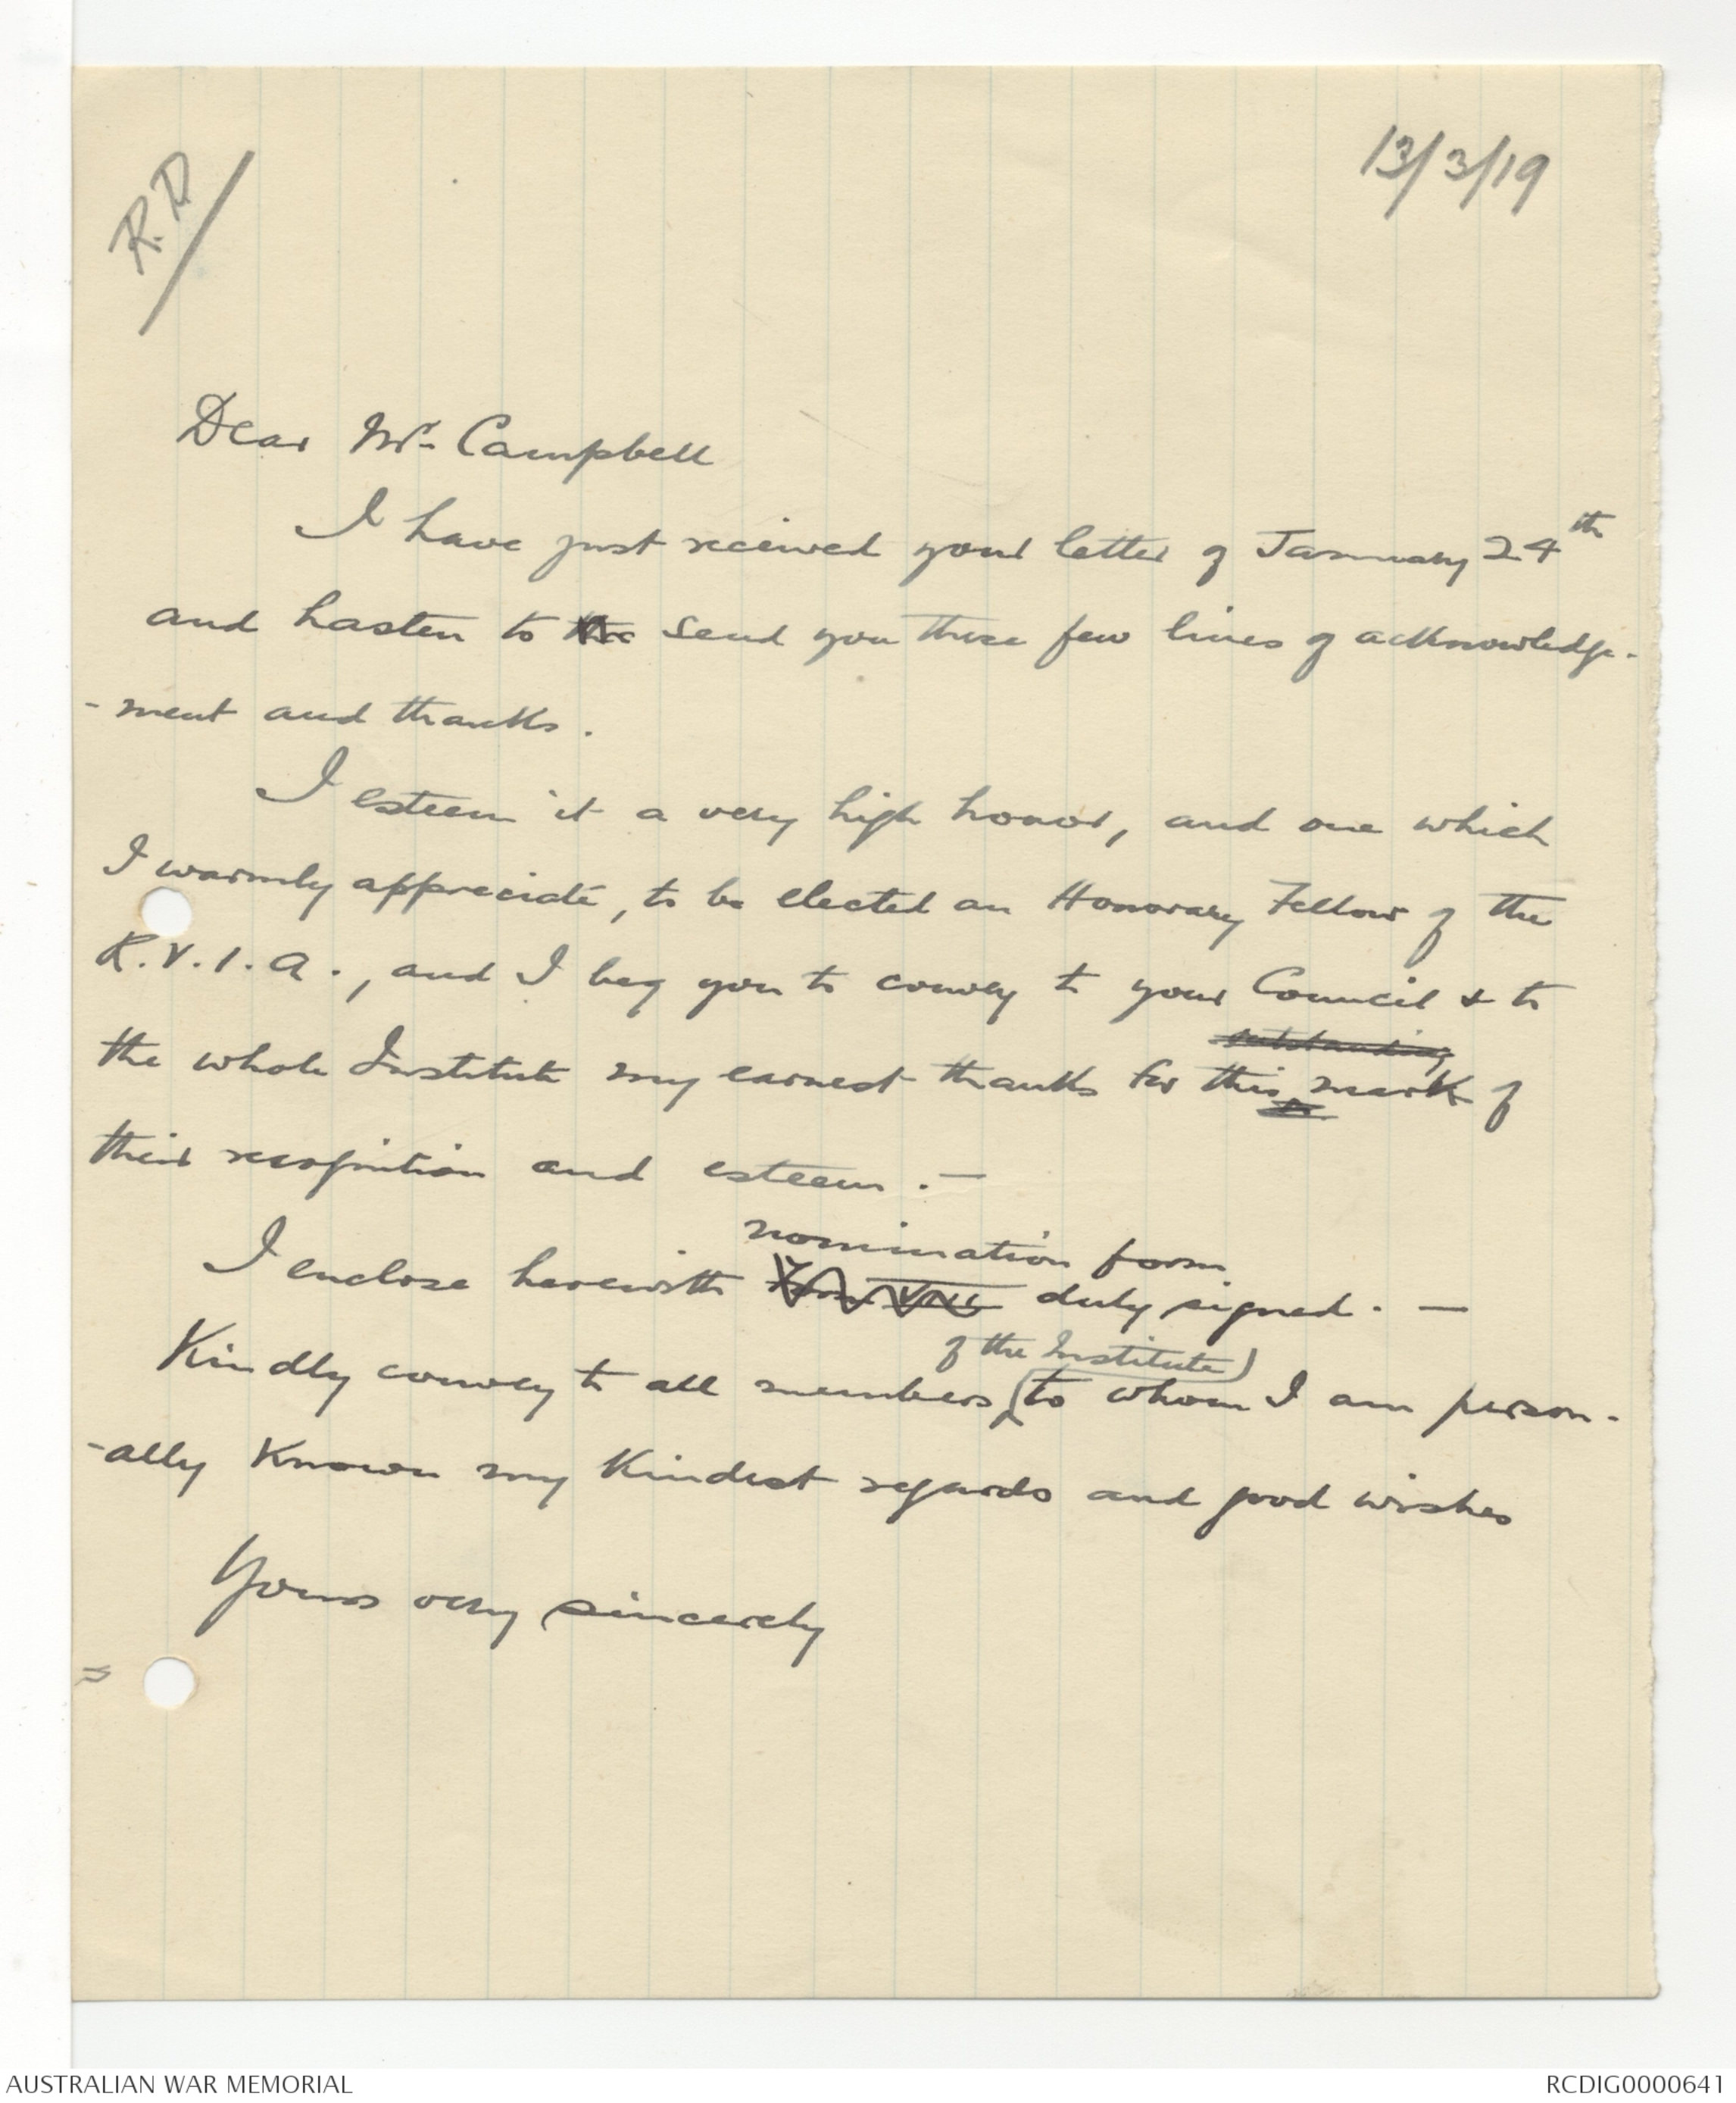 R.D
13/3/19
Dear Mr. Campbell
I have just received your letter of January 24th
and hasten to the send you these few lines of acknowledge-
-ment and thanks.
I esteem it a very high honor, and one which
I warmly appreciate, to be elected an Honorary Fellow of the
R.V.I.A., and I beg you to convey to your Council & to
outstanding
the whole Institute my earnest thanks for this mark of
their recognition and esteem.—
nomination form
I enclose herewith duly signed. —
of the Institute)
Kindly convey to all members (to whom I am person-
-ally known my kindest regards and good wishes
Yours very sincerely
AUSTRALIAN WAR MEMORIAL
RCDIG0000641